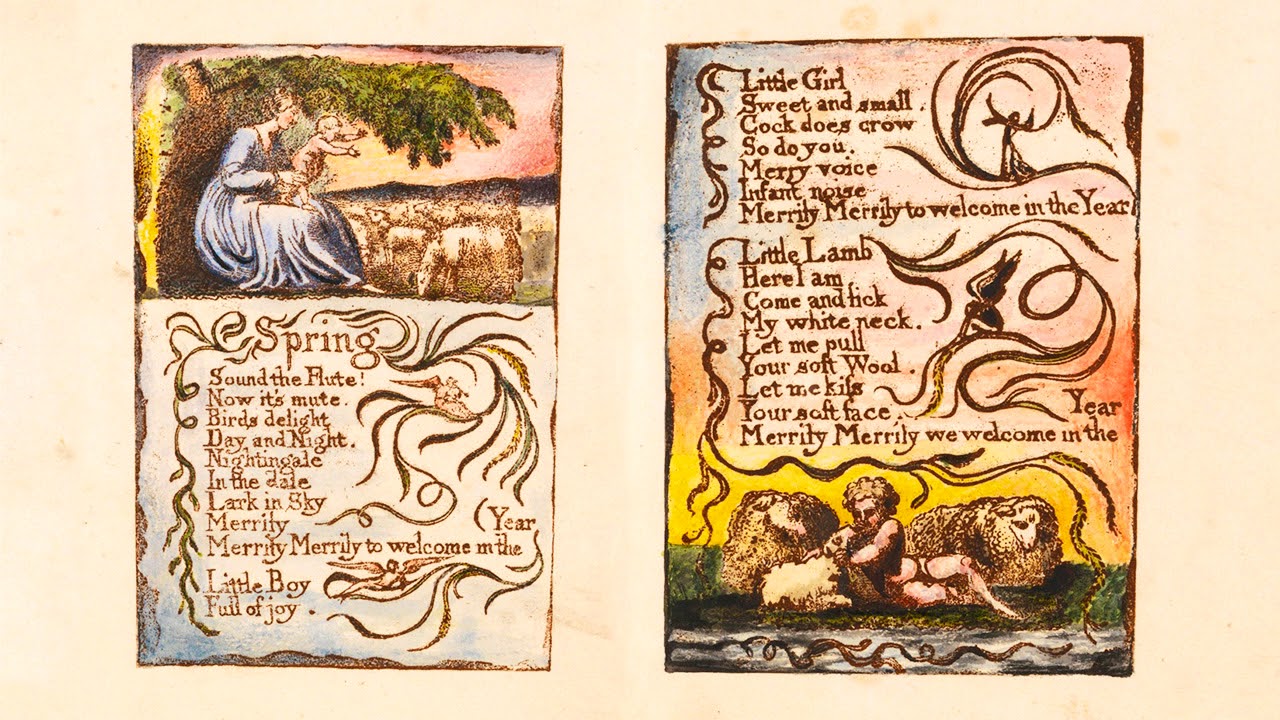 Spring
Sound the Flute!
Now it's mute.
Birds delight
Day and Night.
Nightingale
In the dale
Lark in Sky
Merrily
(Year
Merrily Merrily to welcome in the
Little Boy
Full of joy.
Little Girl
Sweet and small.
Cock does crow
So do you.
Merry voice
Infant noise
Merrily Merrily to welcome in the Year
Little Lamb
Here I am
Come and lick
My white neck.
Let me pull
Your soft Wool.
Let me kiss
Your soft face.
Year
Merrily Merrily we welcome in the